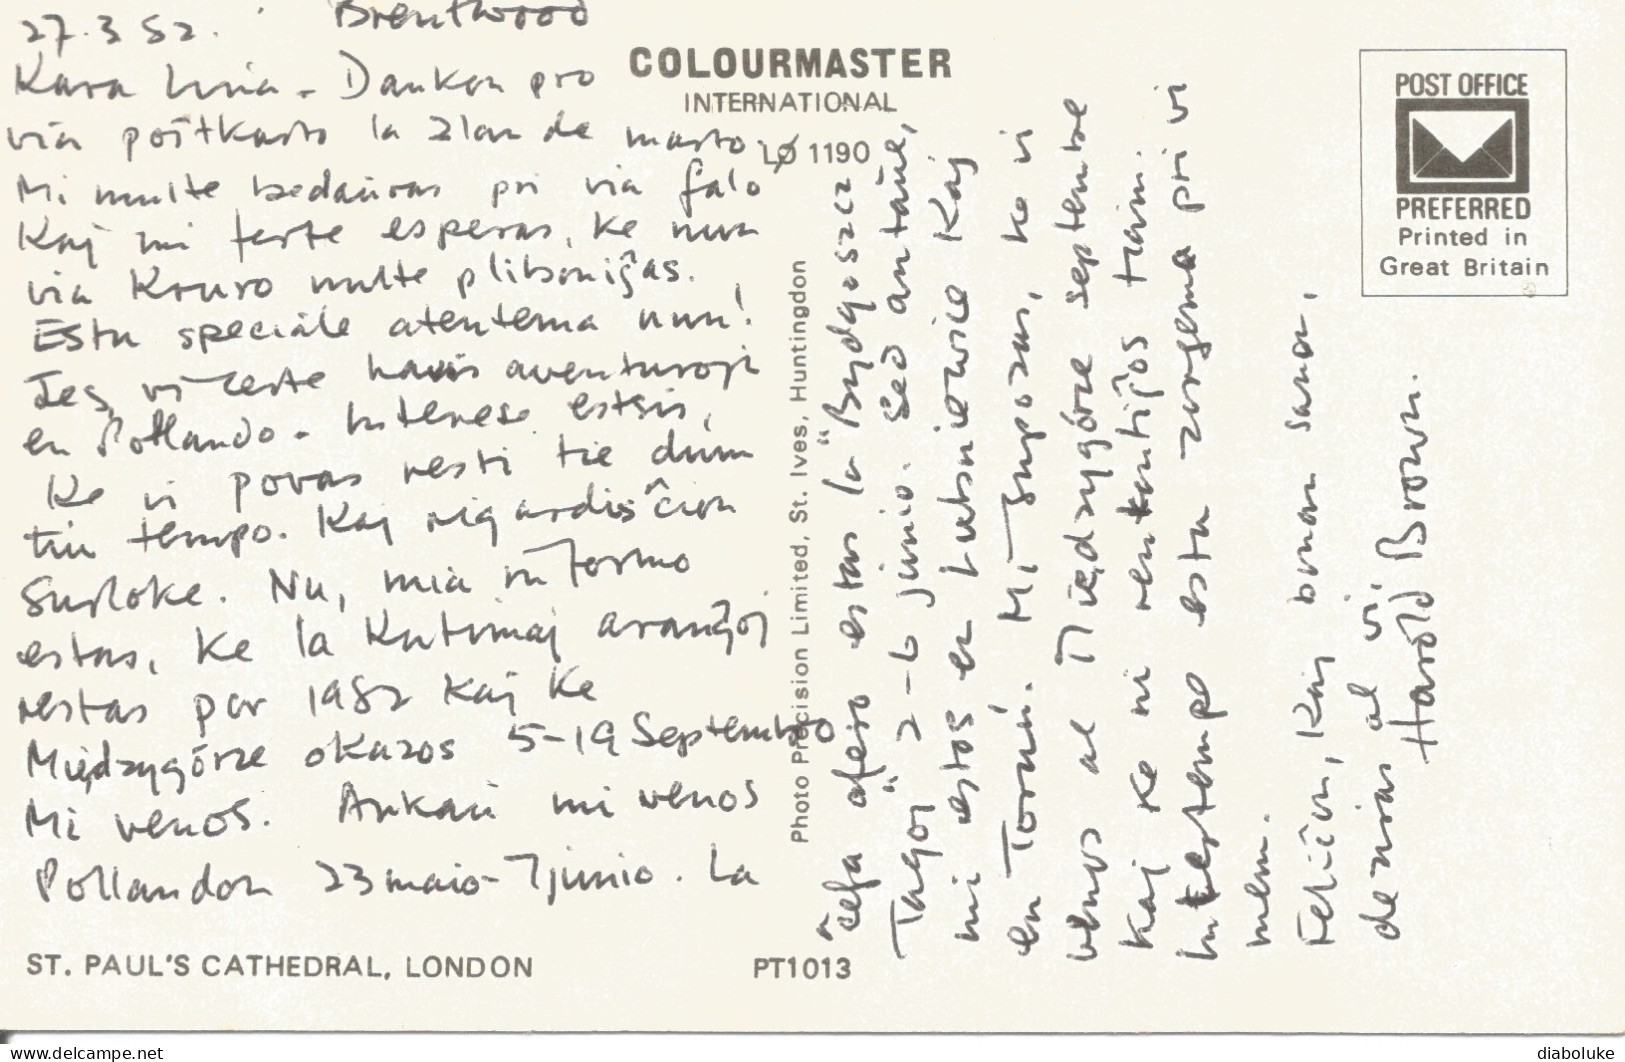 27.3 82. Brentwood
Kara Lina - Dankon pro
via poŝtkarto la 21an de marto.
Mi multe bedaŭras pri via falo
Kaj mi forte esperas, ke nun
via Kruro multe pliboniĝas.
Estu speciale atentema nun!
Jes, vi certe havis aventurojn
en Pollando - Interese estsis,
Ke vi povas resti tie dum
tiu tempo. Kaj rigardis ĉion
surloke. Nu, mia informo
estas, ke la Kutimaj aranĝoj
restas por 1982 kaj ke
Międzygórze okazos 5-19 Septembro
Mi venos. Ankaŭ mi venos
Pollandon 23 maio - 7 junio. La
ĉefa afero estas la "Bydgoszcz
Tagoj" 2-6 junio. Sed antaŭe,
mi estos en Lubniewice Kaj
en Toruń. Mi supozas, ke vi
venos al Międzygórze septembre
Kaj ke ni renkontiĝos tiam.
Intertempe estu zorgema pri vi
mem.
Feliĉon, Kaj bonan sanon,
deziras al vi
Harold Brown.
COLOURMASTER
INTERNATIONAL
LØ 1190
Photo Precision Limited, St. Ives, Huntingdon
POST OFFICE
PREFERRED
Printed in
Great Britain
ST. PAUL'S CATHEDRAL, LONDON
PT1013
www.delcampe.net
diaboluke